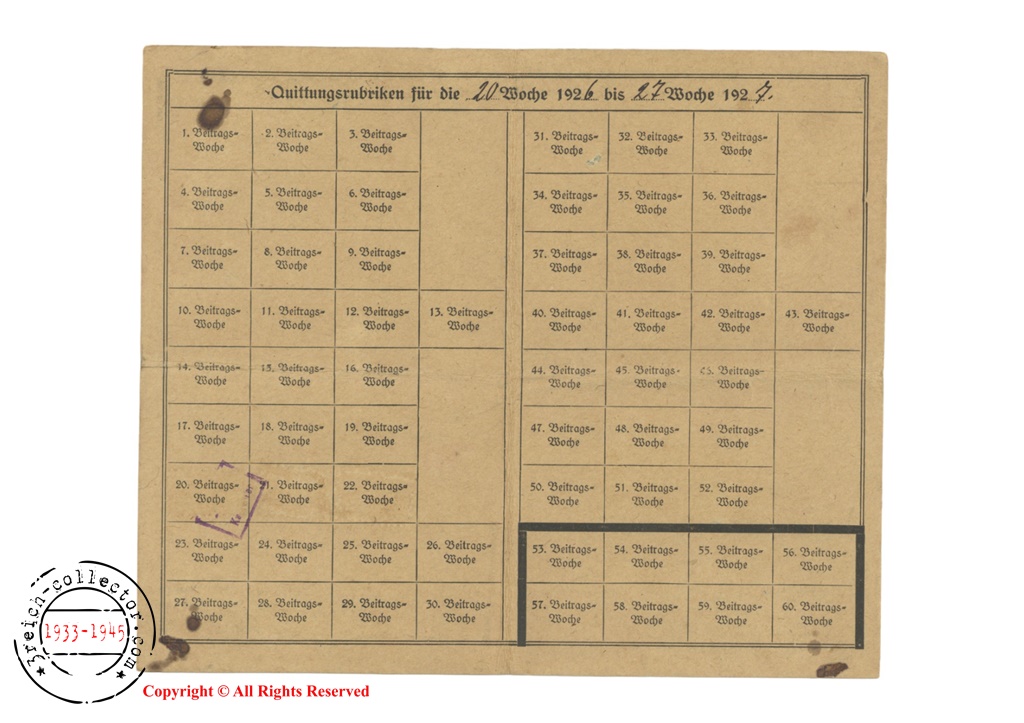 Quittungsrubriken für die 20 Woche 1926 bis 27 Woche 1927.
1. Beitrags=
Woche
2. Beitrags=
Woche
3. Beitrags=
Woche
4. Beitrags=
Woche
5. Beitrags=
Woche
6. Beitrags=
Woche
7. Beitrags=
Woche
8. Beitrags=
Woche
9. Beitrags=
Woche
10. Beitrags=
Woche
11. Beitrags=
Woche
12. Beitrags=
Woche
13. Beitrags=
Woche
14. Beitrags=
Woche
15. Beitrags=
Woche
16. Beitrags=
Woche
17. Beitrags=
Woche
18. Beitrags=
Woche
19. Beitrags=
Woche
20. Beitrags=
Woche
21. Beitrags=
Woche
22. Beitrags=
Woche
23. Beitrags=
Woche
24. Beitrags=
Woche
25. Beitrags=
Woche
26. Beitrags=
Woche
27. Beitrags=
Woche
28. Beitrags=
Woche
29. Beitrags=
Woche
30. Beitrags=
Woche
31. Beitrags=
Woche
32. Beitrags=
Woche
33. Beitrags=
Woche
34. Beitrags=
Woche
35. Beitrags=
Woche
36. Beitrags=
Woche
37. Beitrags=
Woche
38. Beitrags=
Woche
39. Beitrags=
Woche
40. Beitrags=
Woche
41. Beitrags=
Woche
42. Beitrags=
Woche
43. Beitrags=
Woche
44. Beitrags=
Woche
45. Beitrags=
Woche
46. Beitrags=
Woche
47. Beitrags=
Woche
48. Beitrags=
Woche
49. Beitrags=
Woche
50. Beitrags=
Woche
51. Beitrags=
Woche
52. Beitrags=
Woche
53. Beitrags=
Woche
54. Beitrags=
Woche
55. Beitrags=
Woche
56. Beitrags=
Woche
57. Beitrags=
Woche
58. Beitrags=
Woche
59. Beitrags=
Woche
60. Beitrags=
Woche
3reich-collector.com
1933-1945
Copyright © All Rights Reserved